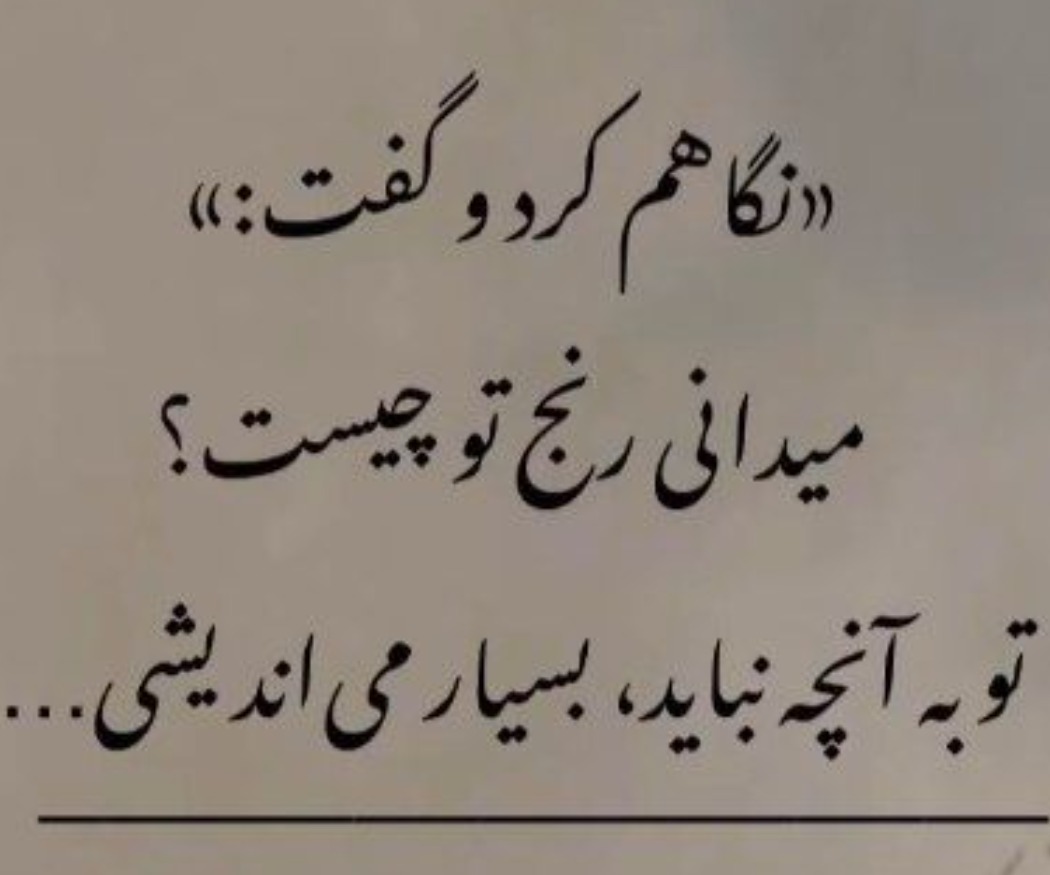 «نگاهم کرد و گفت:»
میدانی رنج تو چیست؟
تو به آنچه نباید، بسیار می اندیشی...